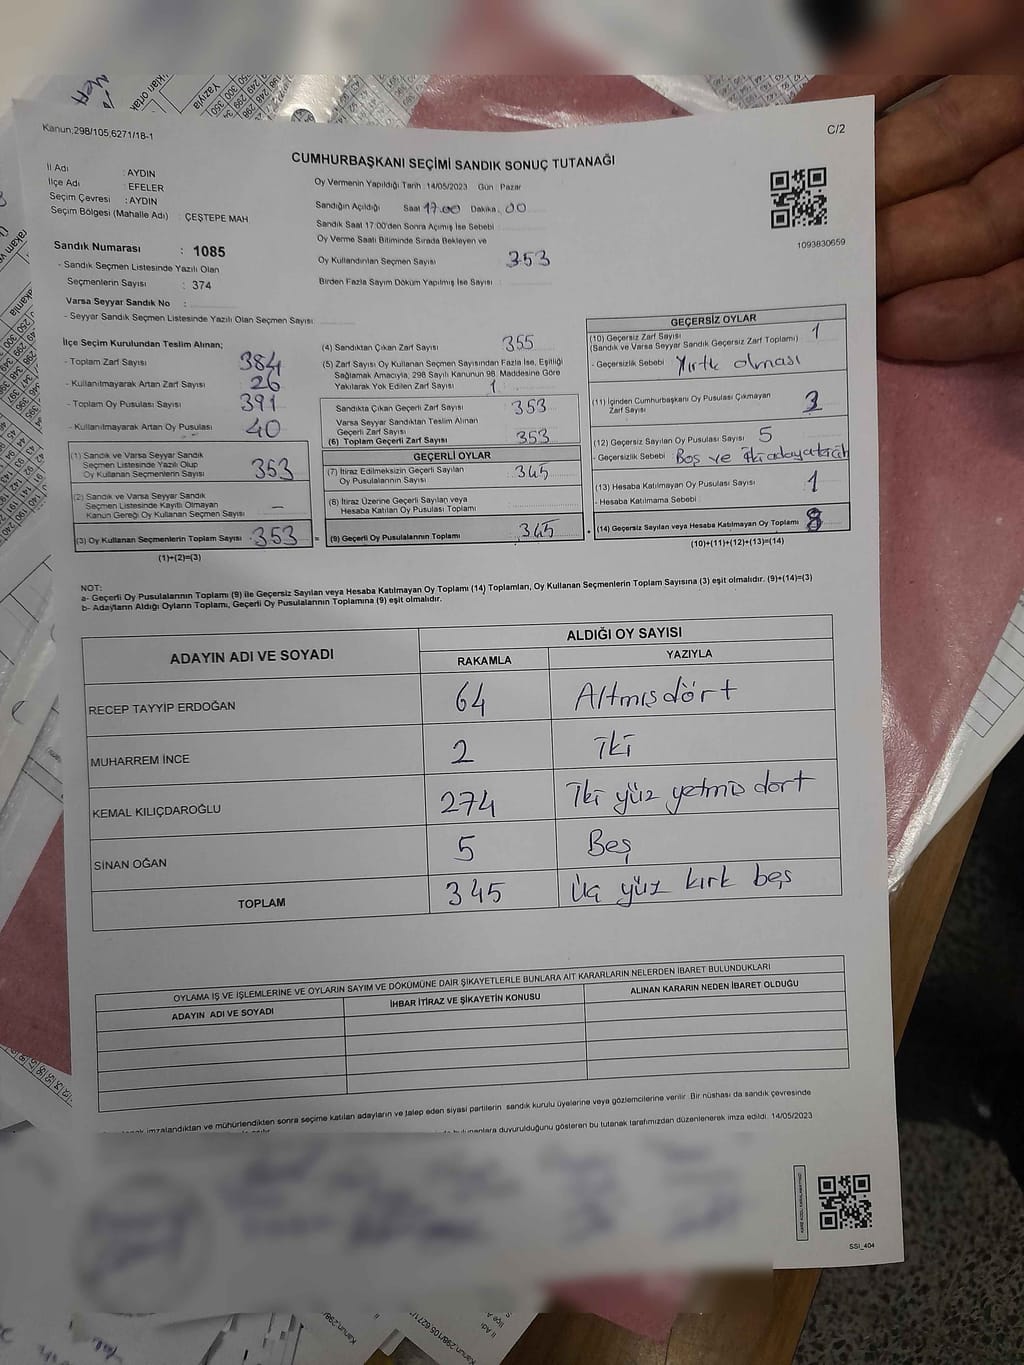 Kanun;298/105,6271/18-1
C/2
CUMHURBAŞKANI SEÇİMİ SANDIK SONUÇ TUTANAĞI
İl Adı : AYDIN
İlçe Adı : EFELER
Seçim Çevresi : AYDIN
Seçim Bölgesi (Mahalle Adı) : ÇEŞTEPE MAH
Sandık Numarası : 1085
- Sandık Seçmen Listesinde Yazılı Olan
Seçmenlerin Sayısı : 374
Varsa Seyyar Sandık No :
- Seyyar Sandık Seçmen Listesinde Yazılı Olan Seçmen Sayısı:
Oy Vermenin Yapıldığı Tarih :14/05/2023 Gün : Pazar
Sandığın Açıldığı Saat 17.00 Dakika: 00
Sandık Saat 17:00'den Sonra Açımış İse Sebebi
Oy Verme Saati Bitiminde Sırada Bekleyen ve
Oy Kullandırılan Seçmen Sayısı 353
Birden Fazla Sayım Döküm Yapılmış İse Sayısı :
1093830659
İlçe Seçim Kurulundan Teslim Alınan;
- Toplam Zarf Sayısı 384
- Kullanılmayarak Artan Zarf Sayısı 26
- Toplam Oy Pusulası Sayısı 391
- Kullanılmayarak Artan Oy Pusulası 40
(1) Sandık ve Varsa Seyyar Sandık
Seçmen Listesinde Yazılı Olup
Oy Kullanan Seçmenlerin Sayısı 353
(2) Sandık ve Varsa Seyyar Sandık
Seçmen Listesinde Kayıtlı Olmayan
Kanun Gereği Oy Kullanan Seçmen Sayısı –
(3) Oy Kullanan Seçmenlerin Toplam Sayısı 353 =
(1)+(2)=(3)
(4) Sandıktan Çıkan Zarf Sayısı 355
(5) Zarf Sayısı Oy Kullanan Seçmen Sayısından Fazla İse, Eşitliği
Sağlamak Amacıyla, 298 Sayılı Kanunun 98. Maddesine Göre
Yakılarak Yok Edilen Zarf Sayısı 1
Sandıkta Çıkan Geçerli Zarf Sayısı 353
Varsa Seyyar Sandıktan Teslim Alınan
Geçerli Zarf Sayısı
(6) Toplam Geçerli Zarf Sayısı 353
GEÇERLİ OYLAR
(7) İtiraz Edilmeksizin Geçerli Sayılan
Oy Pusulasının Sayısı 345
(8) İtiraz Üzerine Geçerli Sayılan veya
Hesaba Katılan Oy Pusulası Toplamı
(9) Geçerli Oy Pusulalarının Toplamı 345
GEÇERSİZ OYLAR
(10) Geçersiz Zarf Sayısı 1
(Sandık ve Varsa Seyyar Sandık Geçersiz Zarf Toplamı)
- Geçersizlik Sebebi Yırtk olması
(11) İçinden Cumhurbaşkanı Oy Pusulası Çıkmayan
Zarf Sayısı
(12) Geçersiz Sayılan Oy Pusulası Sayısı 5
- Geçersizlik Sebebi Boş ve iki
(13) Hesaba Katılmayan Oy Pusulası Sayısı 1
- Hesaba Katılmama Sebebi
(14) Geçersiz Sayılan veya Hesaba Katılmayan Oy Toplamı 8
(10)+(11)+(12)+(13)=(14)
NOT:
a- Geçerli Oy Pusulalarının Toplamı (9) ile Geçersiz Sayılan veya Hesaba Katılmayan Oy Toplamı (14) Toplamları, Oy Kullanan Seçmenlerin Toplam Sayısına (3) eşit olmalıdır. (9)+(14)=(3)
b- Adayların Aldığı Oyların Toplamı, Geçerli Oy Pusulalarının Toplamına (9) eşit olmalıdır.
ADAYIN ADI VE SOYADI
ALDIĞI OY SAYISI
RAKAMLA YAZIYLA
RECEP TAYYİP ERDOĞAN 64 Altmışdört
MUHARREM İNCE 2 iki
KEMAL KILIÇDAROĞLU 274 İki yüz yetmis dört
SİNAN OĞAN 5 Beş
TOPLAM 345 üç yüz kırk beş
OYLAMA İŞ VE İŞLEMLERİNE VE OYLARIN SAYIM VE DÖKÜMÜNE DAİR ŞİKAYETLERLE BUNLARA AİT KARARLARIN NELERDEN İBARET BULUNDUKLARI
ADAYIN ADI VE SOYADI İHBAR İTİRAZ VE ŞİKAYETİN KONUSU ALINAN KARARIN NEDEN İBARET OLDUĞU
imzalandıktan ve mühürlendikten sonra seçime katılan adayların ve talep eden siyasi partilerin sandık kurulu üyelerine veya gözlemcilerine verilir. Bir nüshası da sandık çevresinde
duyurulduğunu gösteren bu tutanak tarafımızdan düzenlenerek imza edildi. 14/05/2023
SSI_404